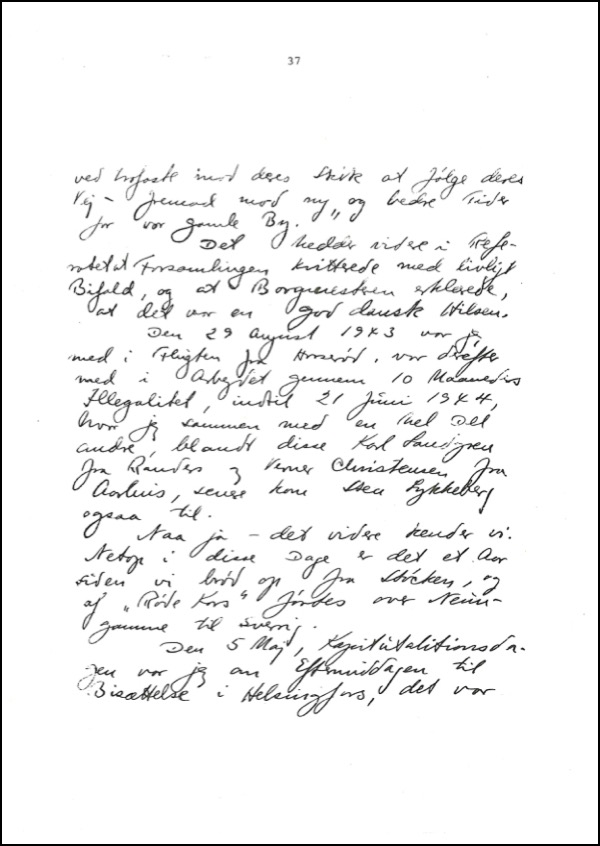 37
ved trofaste mod deres Skik at følge deres
Vej - fremad mod ny" og bedre Tider
for vor gamle By.
Det hedder videre i Refe-
ratet at Forsamlingen kvitterede med livligt
Bifald, og at Borgmesteren erklærede,
at det var en god dansk Hilsen.
Den 29 August 1943 var jeg
med i Flugten fra Horserød, var derefter
med i Arbejdet gennem 10 Maaneders
Illegalitet, indtil 21 Juni 1944,
hvor jeg sammen med en Hel Del
andre, blandt disse Karl Lundgren
fra Randers og Verner Christensen fra
Aarhus, senere kom Sten Lykkeberg
ogsaa til.
Naa ja - det videre kender vi.
Netop i disse Dage er det et Aar
siden vi brød op fra Stöcken, og
af "Røde Kors" førtes over Neuen-
gamme til Sverrig.
Den 5 Maj, Kapitulationsda-
gen var jeg om Eftermiddagen til
Bisættelse i Helsingfors, det var